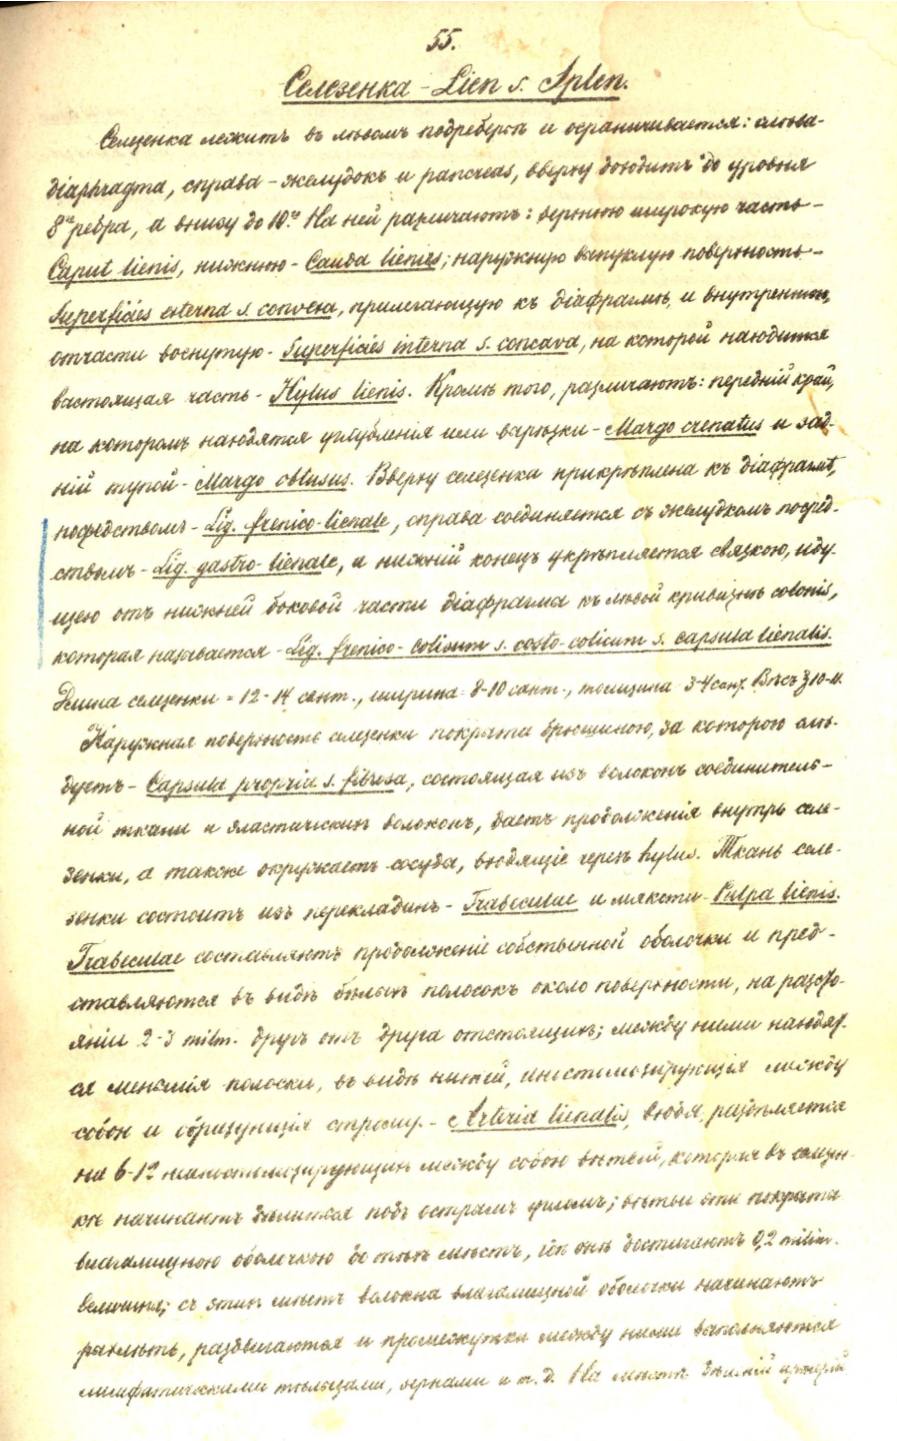 55.
Селезенка - Lien s. Splen.
Селезенка лежитъ въ лѣвомъ подреберьѣ и ограничивается: слѣва -
diaphragma, справа - желудокъ и pancreas, вверху доходитъ до уровня
8го ребра, а внизу до 10го. На ней различаютъ: верхнюю широкую часть -
Caput lienis, нижнюю - Cauda lienis; наружную выпуклую поверхность -
Superficies externa s. convexa, прилегающую къ діафрагмѣ, и внутреннюю,
отчасти вогнутую - Superficies interna s. concava, на которой находится
вастоящая часть - Hylus lienis. Кромѣ того, различаютъ: передній край,
на которомъ находятся углубленія или вырѣзки - Margo crenatus и зад-
ній тупой - Margo obtusus. Вверху селезенка прикрѣплена къ діафрагмѣ,
посредствомъ - Lig. frenico-lienale, справа соединяется съ желудкомъ посред-
ствомъ - Lig. gastro-lienale, а нижній конецъ укрѣпляется связкою, иду-
щею отъ нижней боковой части діафрагма къ лѣвой кривизнѣ colonis,
которая называется - Lig. frenico-colicum s. costo-colicum s. capsula lienalis.
Длина селезенки = 12-14 сант., ширина 8-10 сант., толщина 3-4 сант. Вѣсъ ℥ 10-
Наружная поверхность селезенки покрыта брюшиною, за которою слѣ-
дуетъ - Capsula propria s. fibrosa, состоящая изъ волоконъ соединитель-
ной ткани и эластическихъ волоконъ, даетъ продолженія внутрь селе-
зенки, а также окружаетъ сосуды, входящіе черезъ hylus. Ткань селе-
зенки состоитъ изъ перекладинъ - Trabeculae и мякоти - Pulpa lienis.
Trabeculae составляютъ продолженіе собственной оболочки и пред-
ставляются въ видѣ бѣлыхъ полосокъ около поверхности, на разсто-
яніи 2-3 milm. другъ отъ друга отстоящихъ; между ними находят-
ся меньшія полоски, въ видѣ нитей, анастомозирующія между
собою и образующія строму. - Arteria lienalis, входя, раздѣляется
на 6- неанастомозирующихъ между собою вѣтвей, которыя въ селезен-
кѣ начинаютъ дѣлиться подъ острымъ угломъ; вѣтви эти покрыты
влагалищною оболочкою до тѣхъ мѣстъ, гдѣ онѣ достигаютъ 0,2 milim.
величины; съ этихъ мѣстъ волокна влагалищной оболочки начинаютъ
рѣдѣть, раздвигаются и промежутки между ними выполняются
лимфатическими тѣльцами, зернами и т.д. На мѣстѣ дѣленій артерій